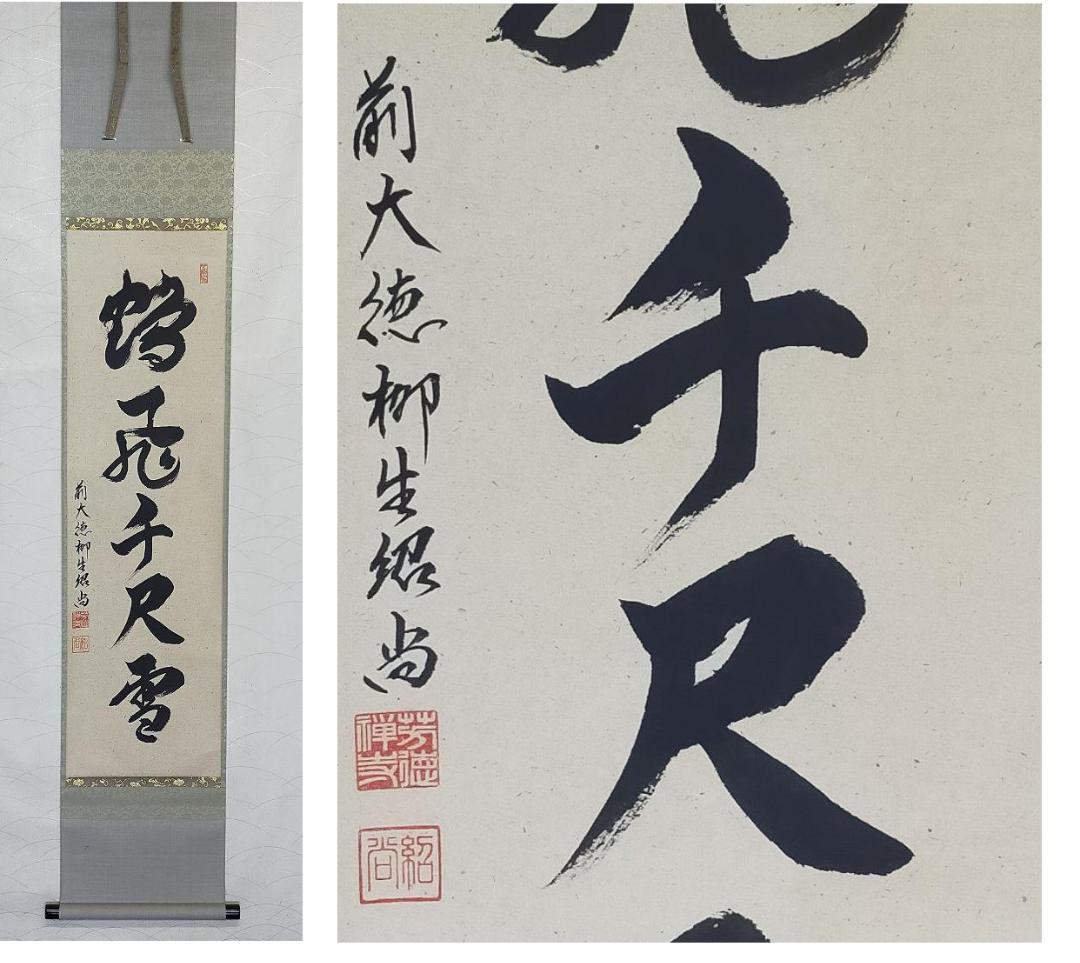 鶴飛千尺雪
前大徳柳生紹尚
千尺
前大徳柳生紹尚
芳徳禅寺
紹尚